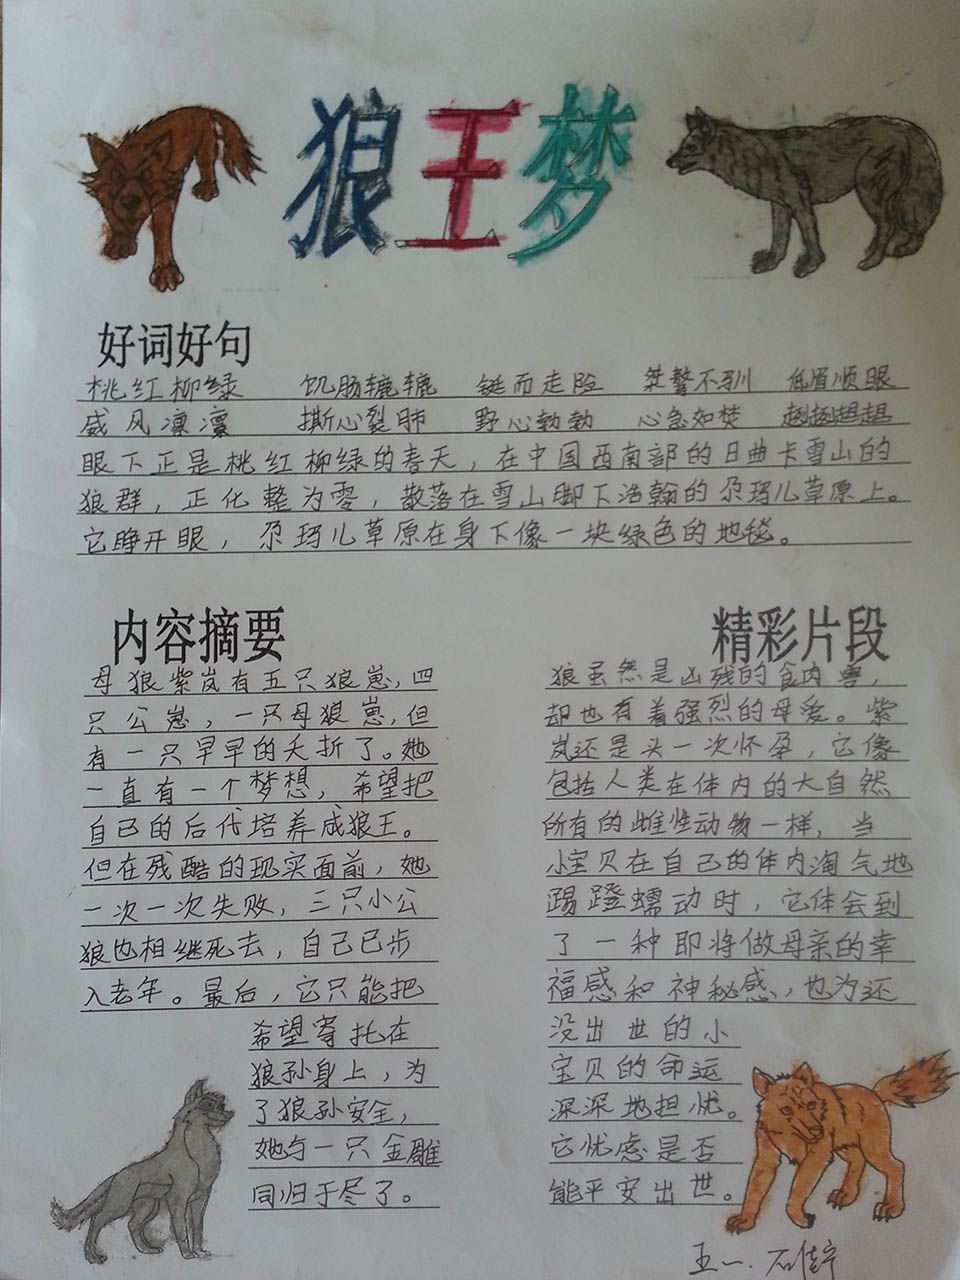 狼王梦
好词好句
桃红柳绿 饥肠辘辘 铤而走险 桀骜不驯 低眉顺眼
威风凛凛 撕心裂肺 野心勃勃 心急如焚 趔趔趄趄
眼下正是桃红柳绿的春天，在中国西南部的日曲卡雪山的
狼群，正化整为零，散落在雪山脚下浩翰的尕玛儿草原上。
它睁开眼，尕玛儿草原在身下像一块绿色的地毯。
内容摘要
母狼紫岚有五只狼崽，四
只公崽，一只母狼崽，但
有一只早早的夭折了。她
一直有一个梦想，希望把
自己的后代培养成狼王。
但在残酷的现实面前，她
一次一次失败，三只小公
狼也相继死去，自己已步
入老年。最后，它只能把
希望寄托在
狼孙身上，为
了狼孙安全，
她与一只金雕
同归于尽了。
精彩片段
狼虽然是凶残的食肉兽，
却也有着强烈的母爱。紫
岚还是头一次怀孕，它像
包括人类在体内的大自然
所有的雌性动物一样，当
小宝贝在自己的体内淘气地
踢蹬蠕动时，它体会到
了一种即将做母亲的幸
福感和神秘感，也为还
没出世的小
宝贝的命运
深深地担忧。
它忧虑是否
能平安出世。
五一.石佳宁